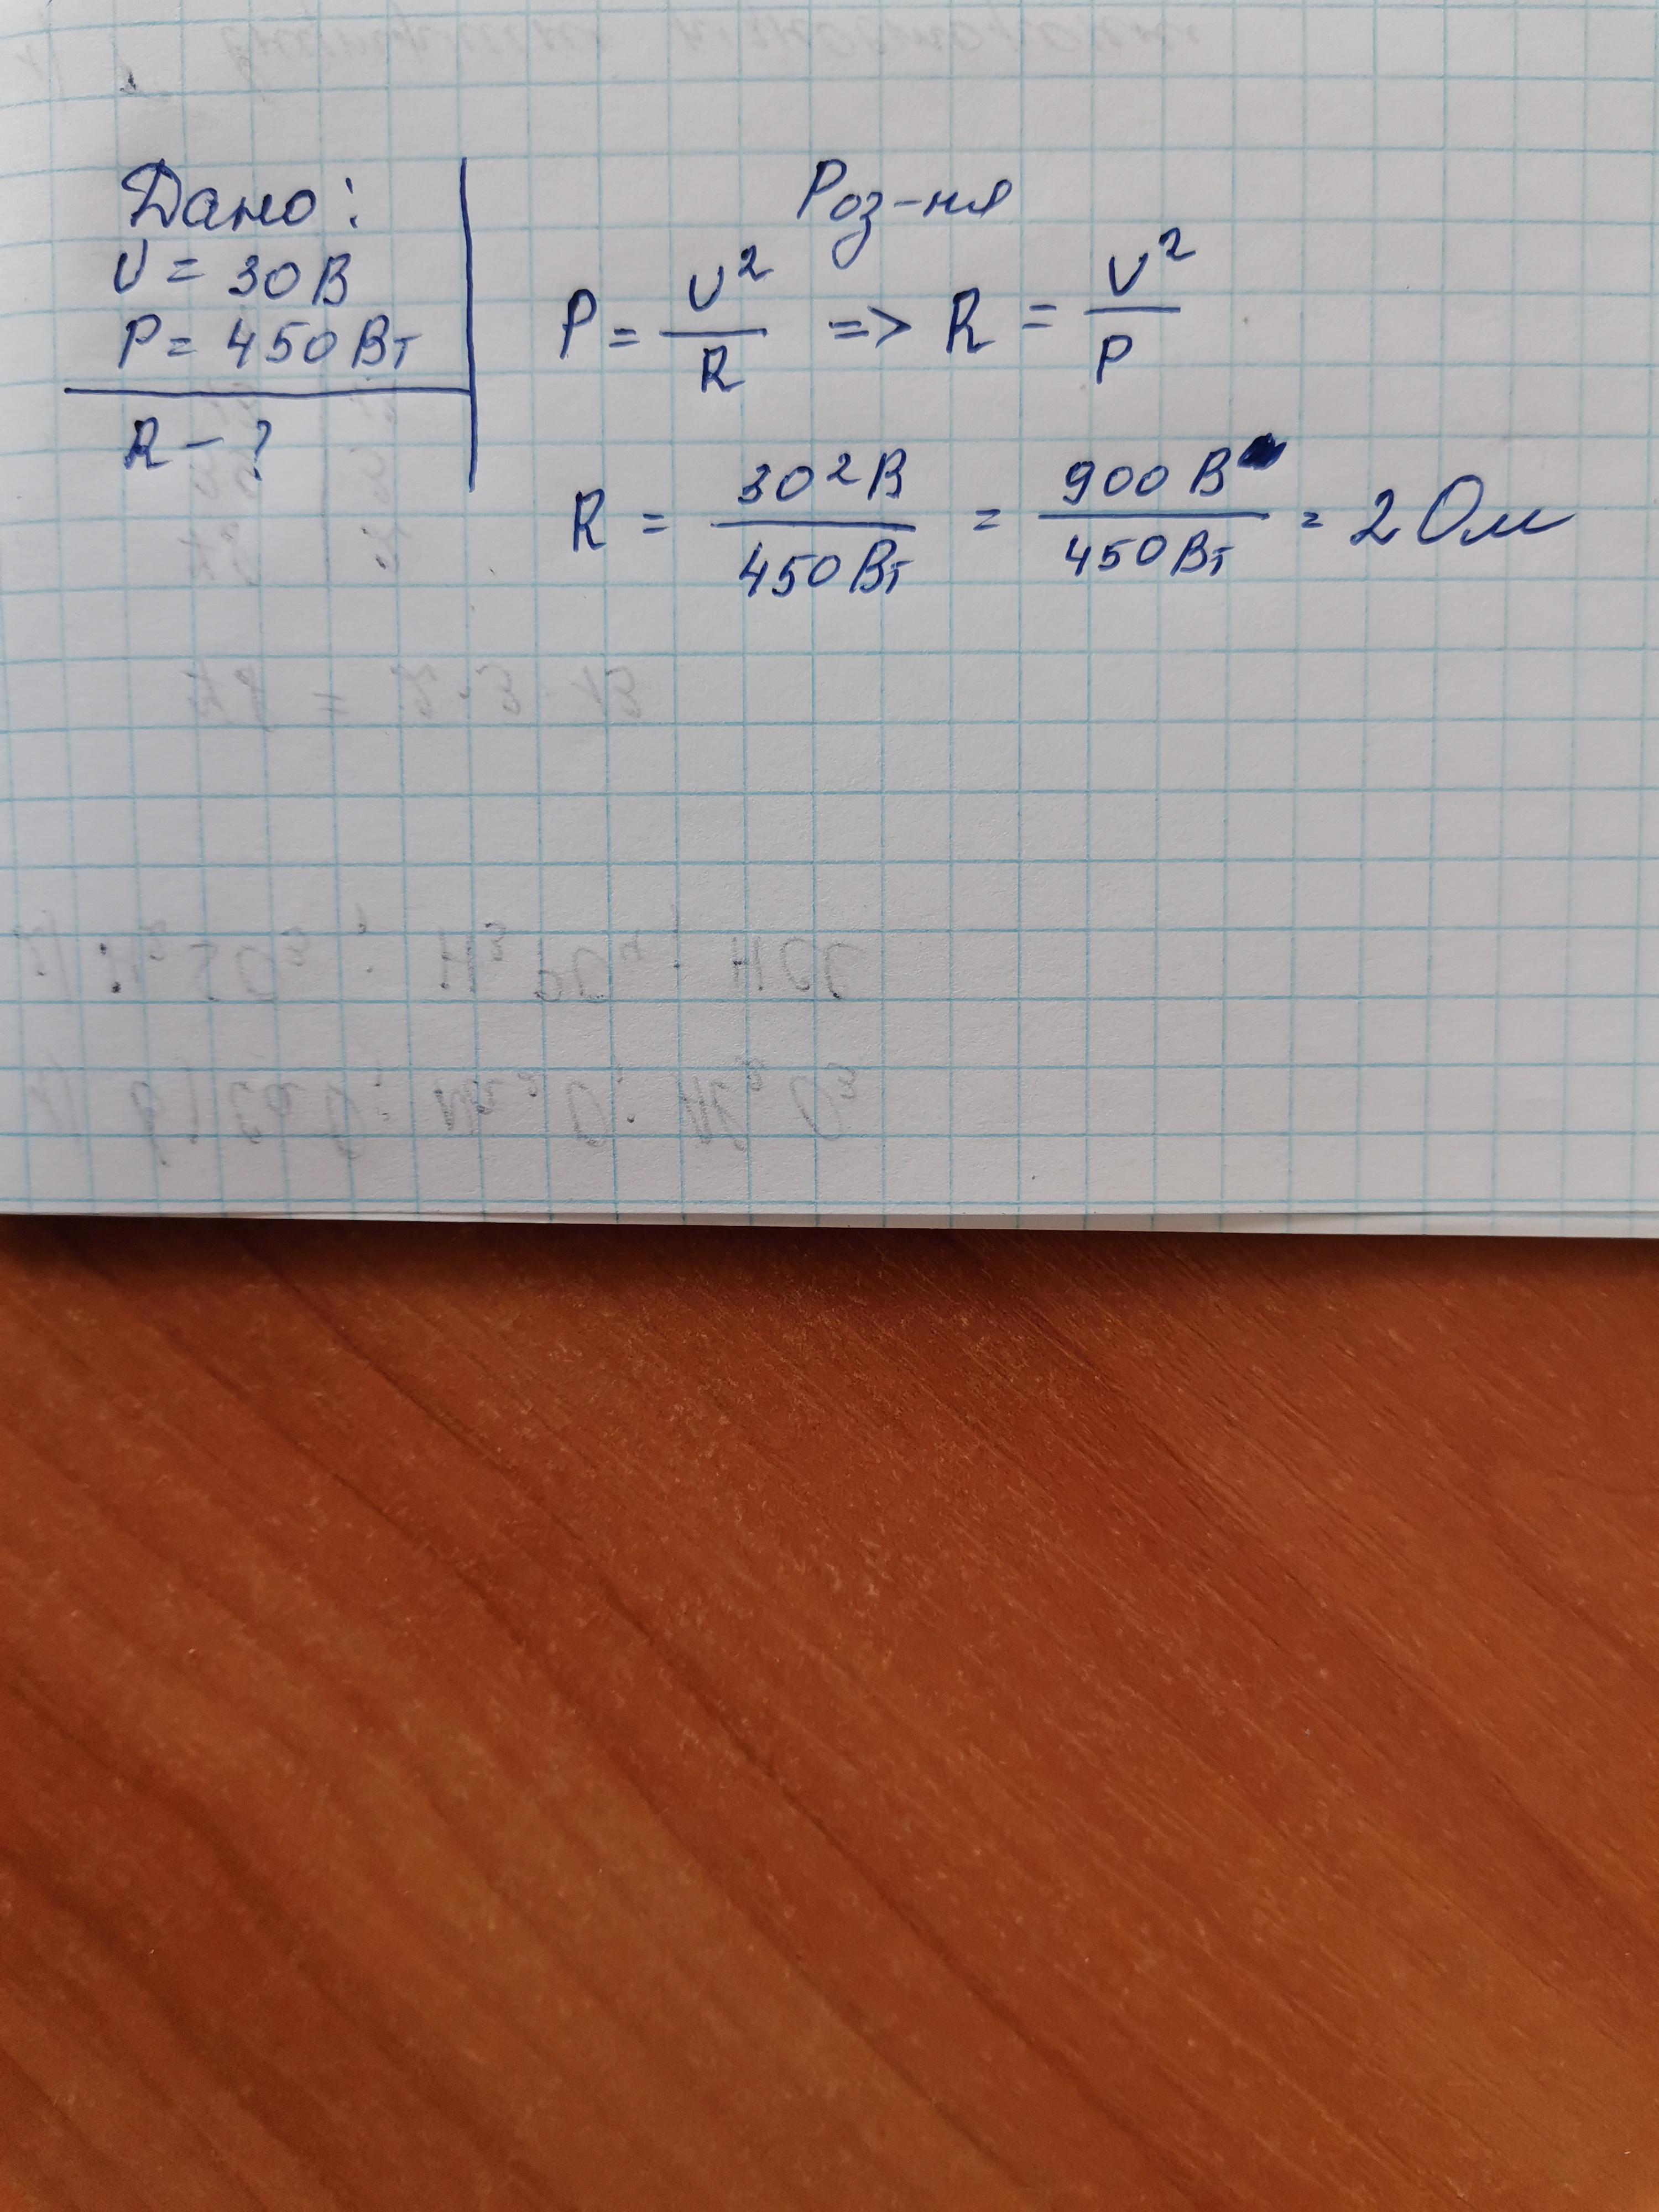 Дано:
U = 30 В
P = 450 Вт
R - ?
Роз-ня
P = U²/R => R = U²/P
R = 30² В/450 Вт = 900 В/450 Вт = 2 Ом